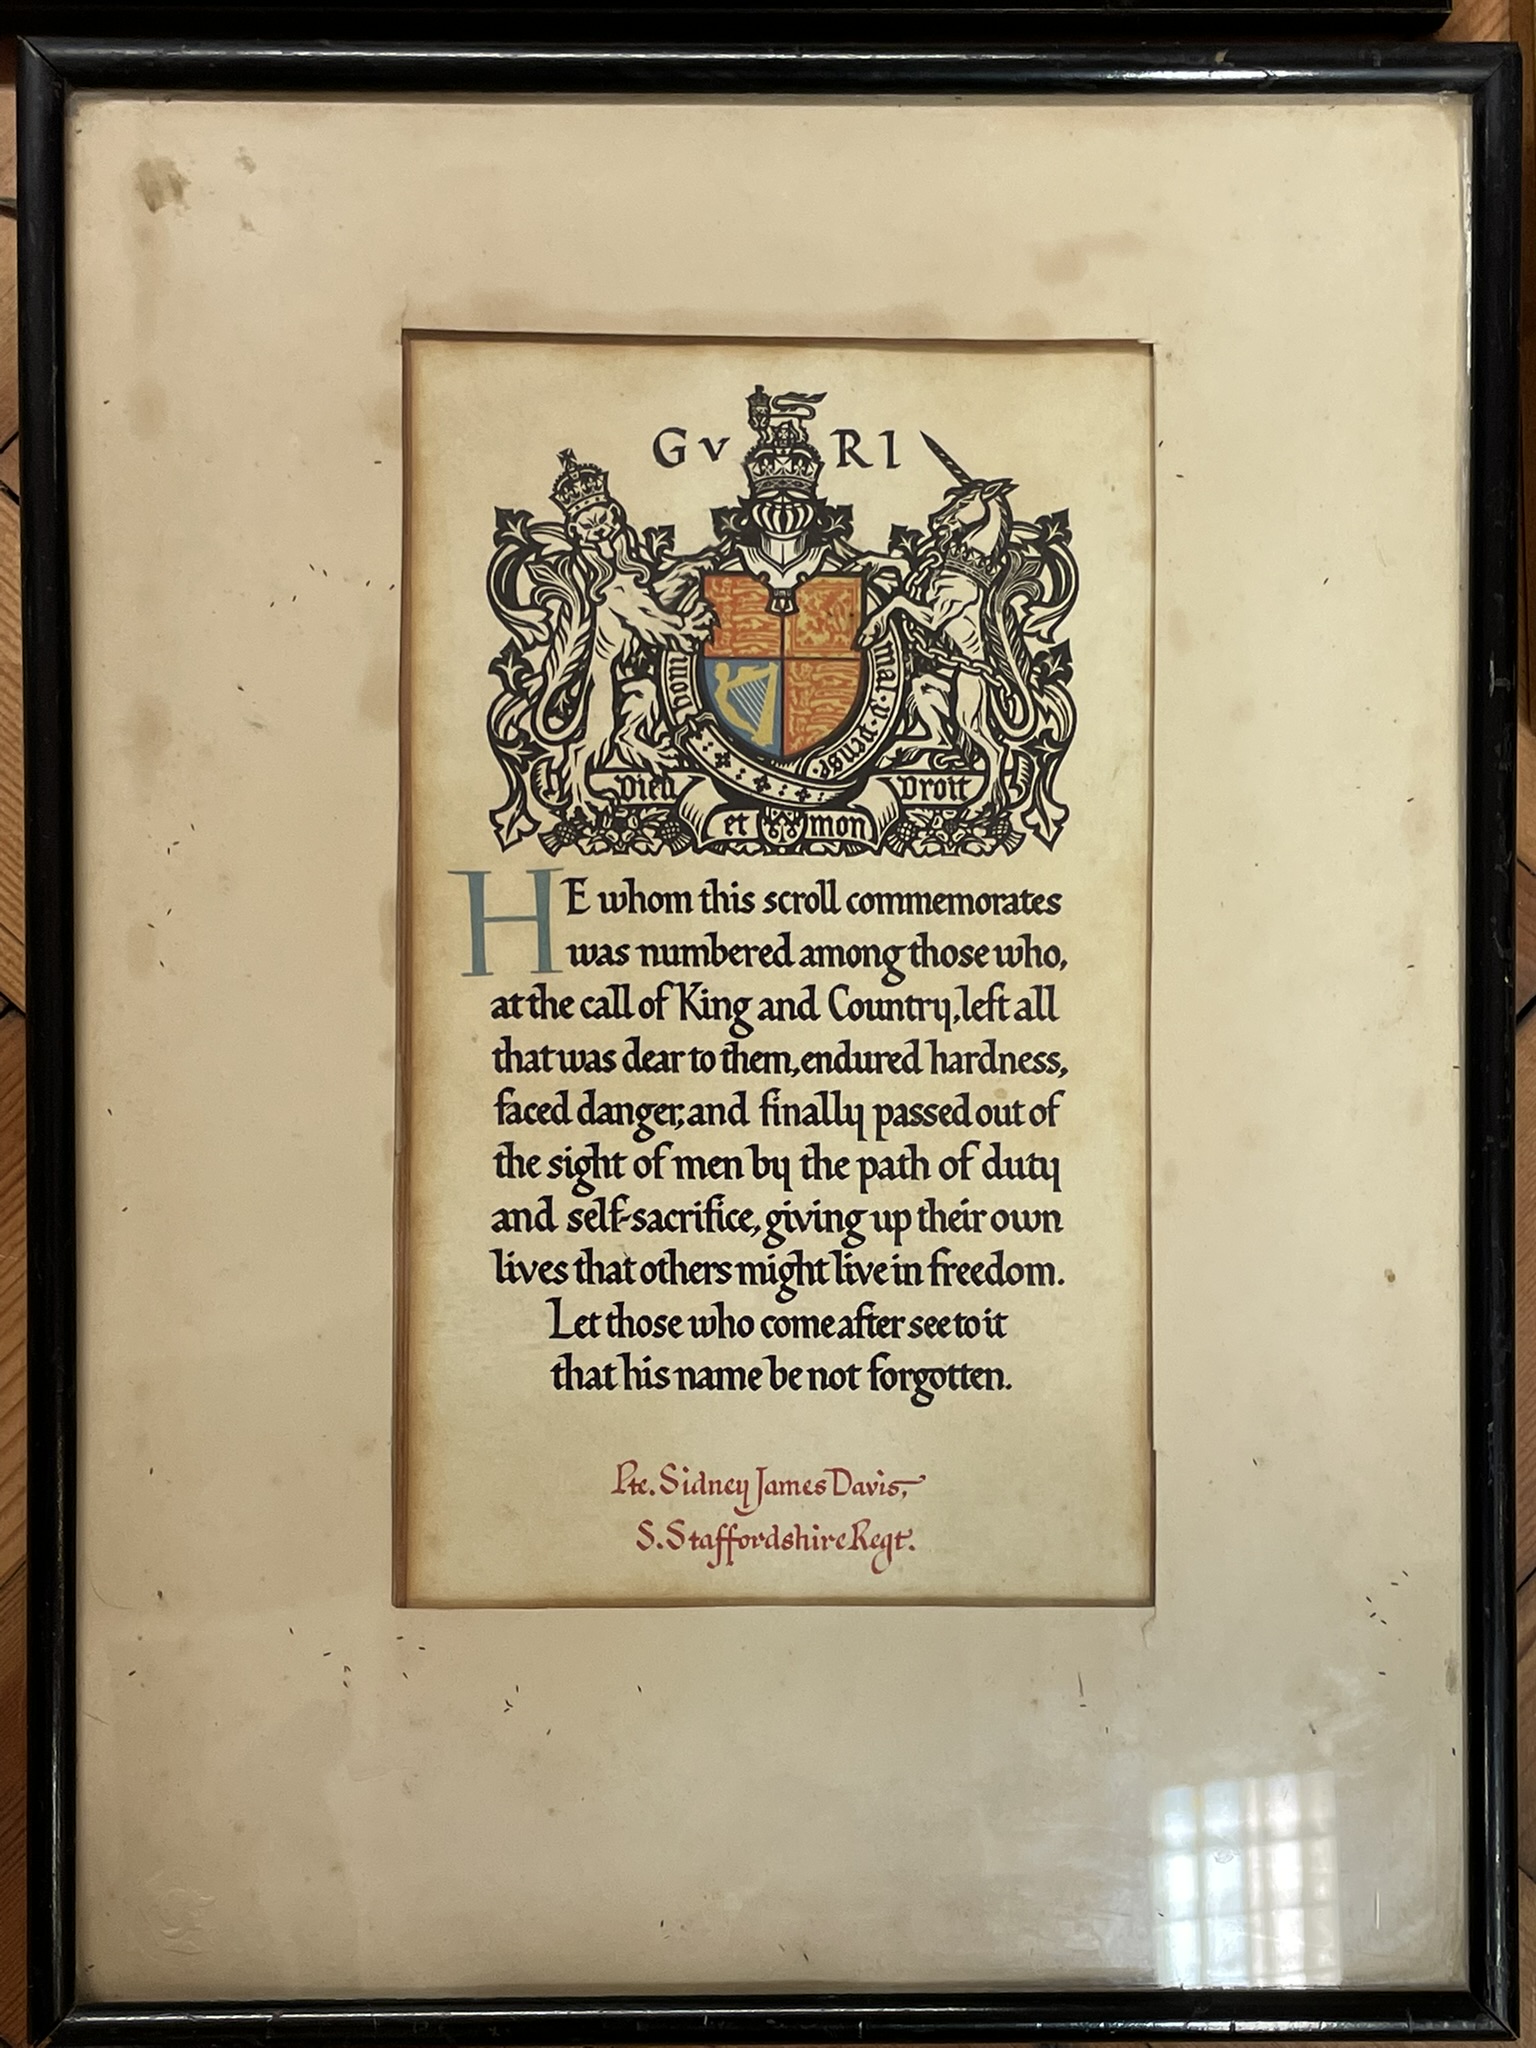 GV RI
hom mal·y·pense
Dieu et mon Droit
HE whom this scroll commemorates
was numbered among those who,
at the call of King and Country, left all
that was dear to them, endured hardness,
faced danger, and finally passed out of
the sight of men by the path of duty
and self-sacrifice, giving up their own
lives that others might live in freedom.
Let those who come after see to it
that his name be not forgotten.
Pte. Sidney James Davis,
S. Staffordshire Regt.